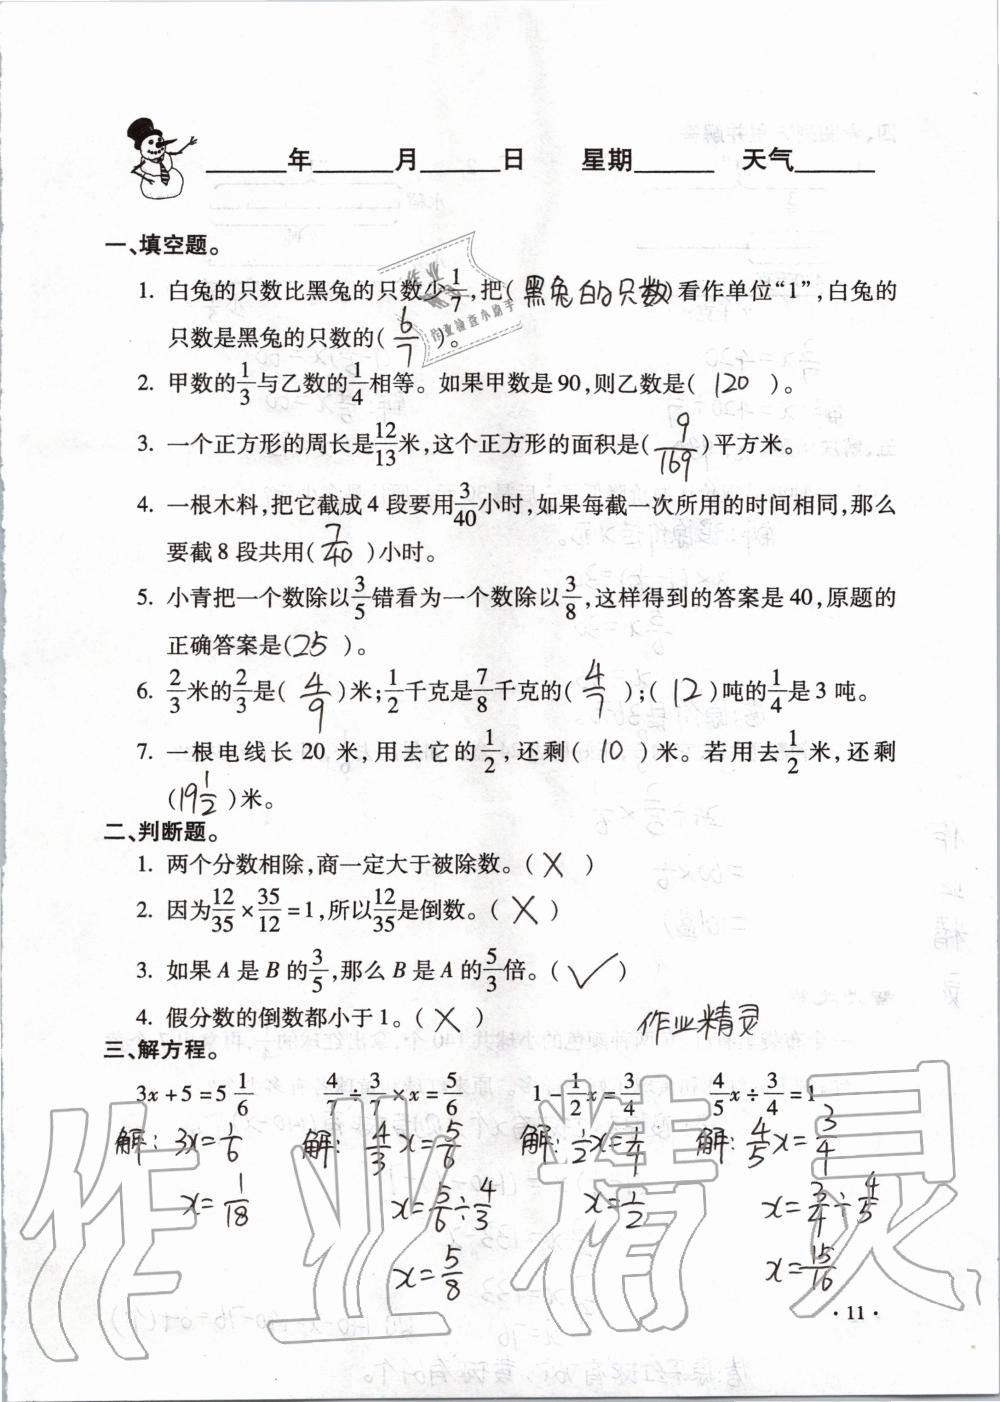 ______年______月______日 星期______ 天气______
一、填空题。
1. 白兔的只数比黑兔的只数少1/7,把(黑兔的只数)看作单位“1”,白兔的
只数是黑兔的只数的( 6/7 )。
2. 甲数的1/3与乙数的1/4相等。如果甲数是90,则乙数是( 120 )。
3. 一个正方形的周长是12/13米,这个正方形的面积是( 9/169 )平方米。
4. 一根木料,把它截成4段要用3/40小时,如果每截一次所用的时间相同,那么
要截8段共用( 7/40 )小时。
5. 小青把一个数除以3/5错看为一个数除以3/8,这样得到的答案是40,原题的
正确答案是( 25 )。
6. 2/3米的2/3是( 4/9 )米;1/2千克是7/8千克的( 4/7 );( 12 )吨的1/4是3吨。
7. 一根电线长20米,用去它的1/2,还剩( 10 )米。若用去1/2米,还剩
( 19 1/2 )米。
二、判断题。
1. 两个分数相除,商一定大于被除数。( X )
2. 因为12/35×35/12=1,所以12/35是倒数。( X )
3. 如果A是B的3/5,那么B是A的5/3倍。( ✓ )
4. 假分数的倒数都小于1。( X ) 作业精灵
三、解方程。
3x+5=5 1/6 4/7÷3/7×x=5/6 1-1/2x=3/4 4/5x÷3/4=1
解:3x=1/6 解:4/3x=5/6 解:1/2x=1/4 解:4/5x=3/4
x=1/18 x=5/6÷4/3 x=1/2 x=3/4÷4/5
x=5/8 x=15/16
·11·
作业精灵
作业
作业检查小助手